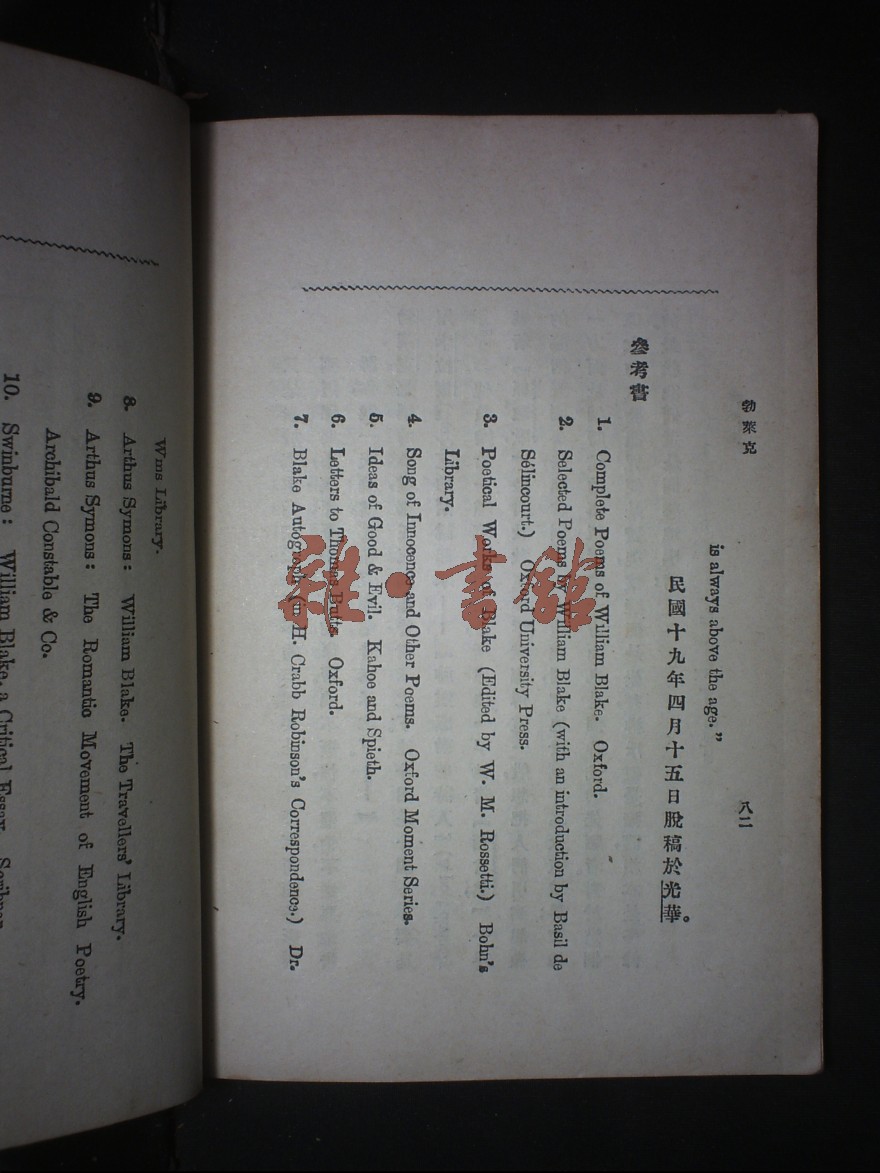 勃萊克
八二
is always above the age.”
民國十九年四月十五日脫稿於光華。
參考書
1. Complete Poems of William Blake. Oxford.
2. Selected Poems by William Blake (with an introduction by Basil de
Sélincourt.) Oxford University Press.
3. Poetical Works of Blake (Edited by W. M. Rossetti.) Bohn's
Library.
4. Song of Innocence and Other Poems. Oxford Moment Series.
5. Ideas of Good & Evil. Kahoe and Spieth.
6. Letters to Thomas Butts. Oxford.
7. Blake Autograph (in H. Crabb Robinson's Correspondence.) Dr.
Wms Library.
8. Arthus Symons: William Blake. The Travellers' Library.
9. Arthus Symons: The Romantic Movement of English Poetry.
Archibald Constable & Co.
10. Swinburne: William Blake, a Critical Essay. Scribner